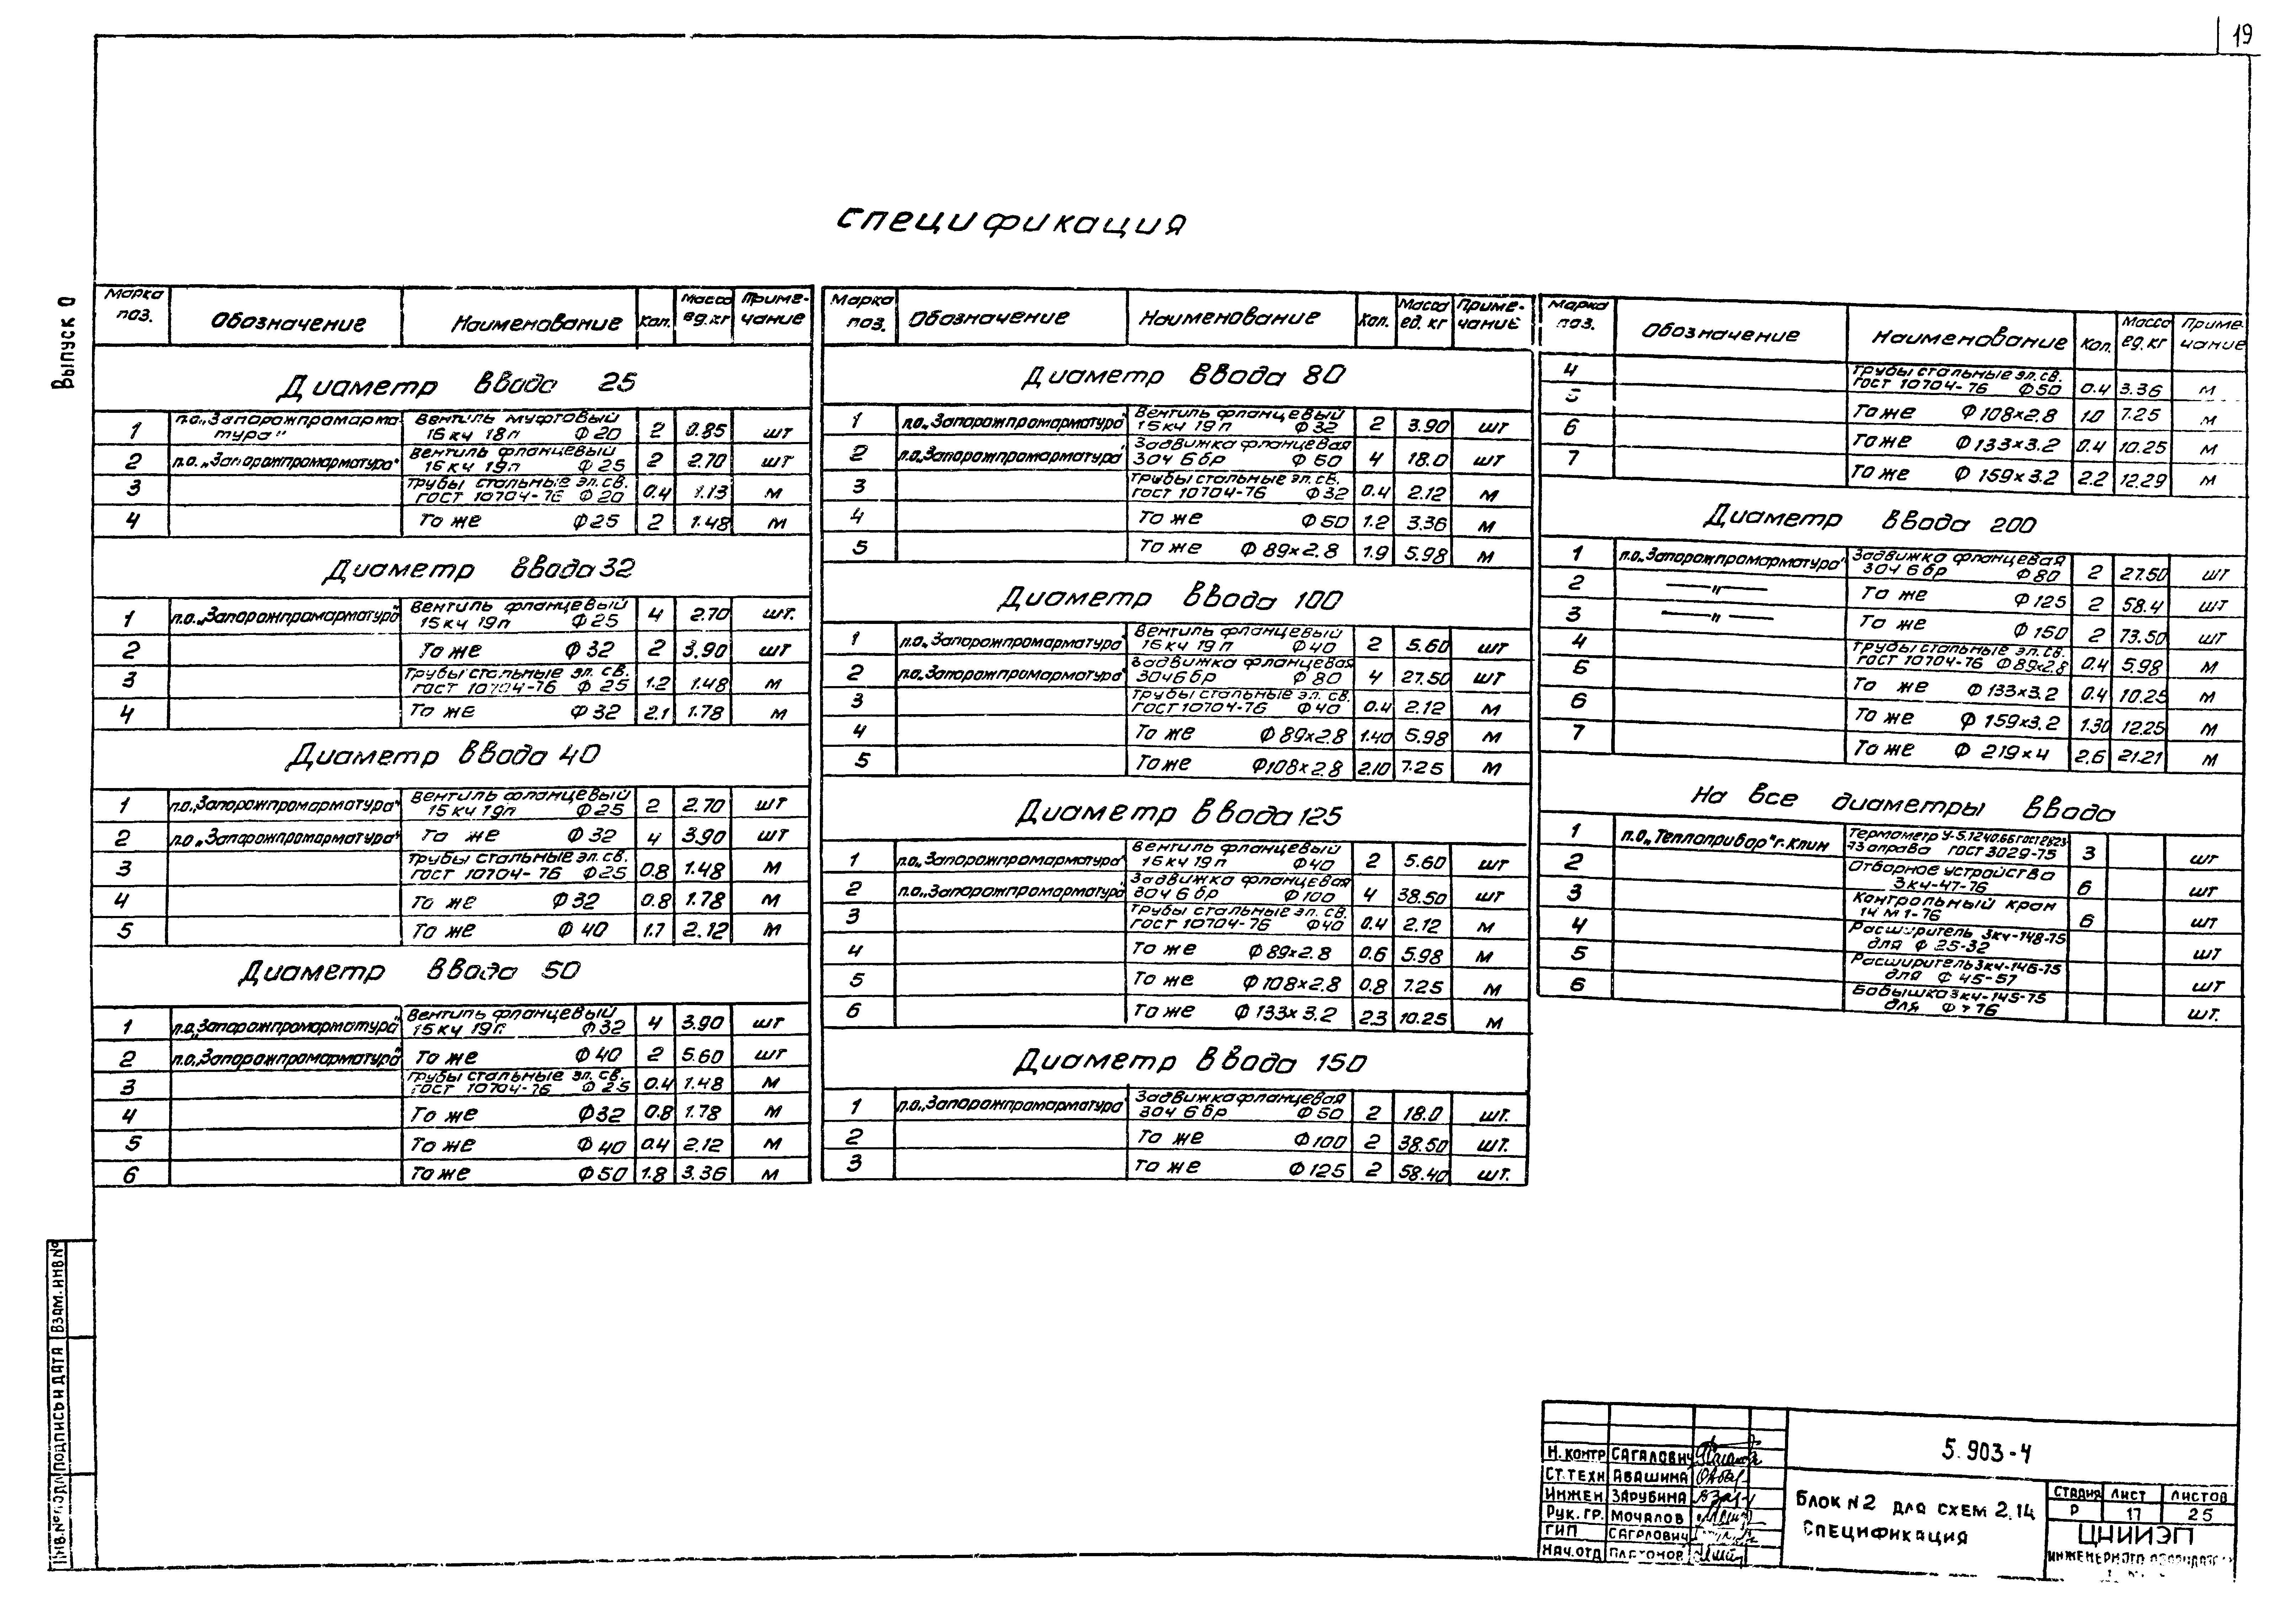 19
Выпуск 0
Спецификация
Марка поз. Обозначение Наименование Кол. Масса ед. кг Приме-чание
Диаметр ввода 25
1 п.о. „Запорожпромарма
тура" Вентиль муфтовый 15кч 18п Ф20 2 0.85 шт
2 п.о. „Запорожпромарматура" Вентиль фланцевый 15кч 19п Ф25 2 2.70 шт
3 Трубы стальные эл.св. ГОСТ 10704-76 Ф20 0.4 1.13 м
4 То же Ф25 2 1.48 м
Диаметр ввода 32
1 п.о. „Запорожпромарматура" Вентиль фланцевый 15кч 19п Ф25 4 2.70 шт.
2 То же Ф32 2 3.90 шт
3 Трубы стальные эл. св. ГОСТ 10704-76 Ф25 1.2 1.48 м
4 То же Ф32 2.1 1.78 м
Диаметр ввода 40
1 п.о. „Запорожпромарматура" Вентиль фланцевый 15кч 19п Ф25 2 2.70 шт
2 п.о. „Запорожпромарматура" То же Ф32 4 3.90 шт
3 Трубы стальные эл. св. ГОСТ 10704-76 Ф25 0.8 1.48 м
4 То же Ф32 0.8 1.78 м
5 То же Ф40 1.7 2.12 м
Диаметр ввода 50
1 п.о. „Запорожпромарматура" Вентиль фланцевый 15кч 19п Ф32 4 3.90 шт
2 п.о. „Запорожпромарматура" То же Ф40 2 5.60 шт
3 Трубы стальные эл. св. ГОСТ 10704-76 Ф25 0.4 1.48 м
4 То же Ф32 0.8 1.78 м
5 То же Ф40 0.4 2.12 м
6 То же Ф50 1.8 3.36 м
Марка поз. Обозначение Наименование Кол. Масса ед. кг Приме-чание
Диаметр ввода 80
1 п.о. „Запорожпромарматура" Вентиль фланцевый 15кч 19п Ф32 2 3.90 шт
2 п.о. „Запорожпромарматура" Задвижка фланцевая 30ч 6бр Ф50 4 18.0 шт
3 Трубы стальные эл. св. ГОСТ 10704-76 Ф32 0.4 2.12 м
4 То же Ф50 1.2 3.36 м
5 То же Ф89×2.8 1.9 5.98 м
Диаметр ввода 100
1 п.о. „Запорожпромарматура" Вентиль фланцевый 15кч 19п Ф40 2 5.60 шт
2 п.о. „Запорожпромарматура" Задвижка фланцевая 30ч6бр Ф80 4 27.50 шт
3 Трубы стальные эл. св. ГОСТ 10704-76 Ф40 0.4 2.12 м
4 То же Ф89×2.8 1.40 5.98 м
5 То же Ф108×2.8 2.10 7.25 м
Диаметр ввода 125
1 п.о. „Запорожпромарматура" Вентиль фланцевый 15кч 19п Ф40 2 5.60 шт
2 п.о. „Запорожпромарматура" Задвижка фланцевая 30ч 6бр Ф100 4 38.50 шт
3 Трубы стальные эл. св. ГОСТ 10704-76 Ф40 0.4 2.12 м
4 То же Ф89×2.8 0.6 5.98 м
5 То же Ф108×2.8 0.8 7.25 м
6 То же Ф133×3.2 2.3 10.25 м
Диаметр ввода 150
1 п.о. „Запорожпромарматура" Задвижка фланцевая 30ч 6бр Ф50 2 18.0 шт.
2 То же Ф100 2 38.50 шт.
3 То же Ф125 2 58.40 шт.
Марка поз. Обозначение Наименование Кол. Масса ед. кг Приме-чание
4 Трубы стальные эл. св. ГОСТ 10704-76 Ф50 0.4 3.36 м
5 То же Ф108×2.8 1.0 7.25 м
6 То же Ф133×3.2 0.4 10.25 м
7 То же Ф159×3.2 2.2 12.29 м
Диаметр ввода 200
1 п.о. „Запорожпромарматура" Задвижка фланцевая 30ч 6бр Ф80 2 27.50 шт
2 — " — То же Ф125 2 58.4 шт
3 — " — То же Ф150 2 73.50 шт
4 Трубы стальные эл. св. ГОСТ 10704-76 Ф89×2.8 0.4 5.98 м
5 То же Ф133×3.2 0.4 10.25 м
6 То же Ф159×3.2 1.30 12.25 м
7 То же Ф219×4 2.6 21.21 м
На все диаметры ввода
1 п.о. „Теплоприбор" г. Клин Термометр У-5.1240.66 ГОСТ 2823-73 оправа ГОСТ 3029-75 3 шт
2 Отборное устройство 3кч-47-76 6 шт
3 Контрольный кран 14 М1-76 6 шт
4 Расширитель 3кч-148-75 для Ф 25-32 шт
5 Расширитель 3кч-146-75 для Ф 45-57 шт
6 Бобышка 3кч-145-75 для Ф 76 шт.
Взам. инв.№
Подпись и дата
Инв.№ подл
Н. контр Сагалович
Ст. техн Авашина
Инжен Зарубина
Рук. гр. Мочалов
ГИП Сагалович
Нач. отд Платонов
5.903-4
Блок №2 для схем 2.14
Спецификация
Стадия Лист Листов
Р 17 25
ЦНИИЭП
инженерного оборудования